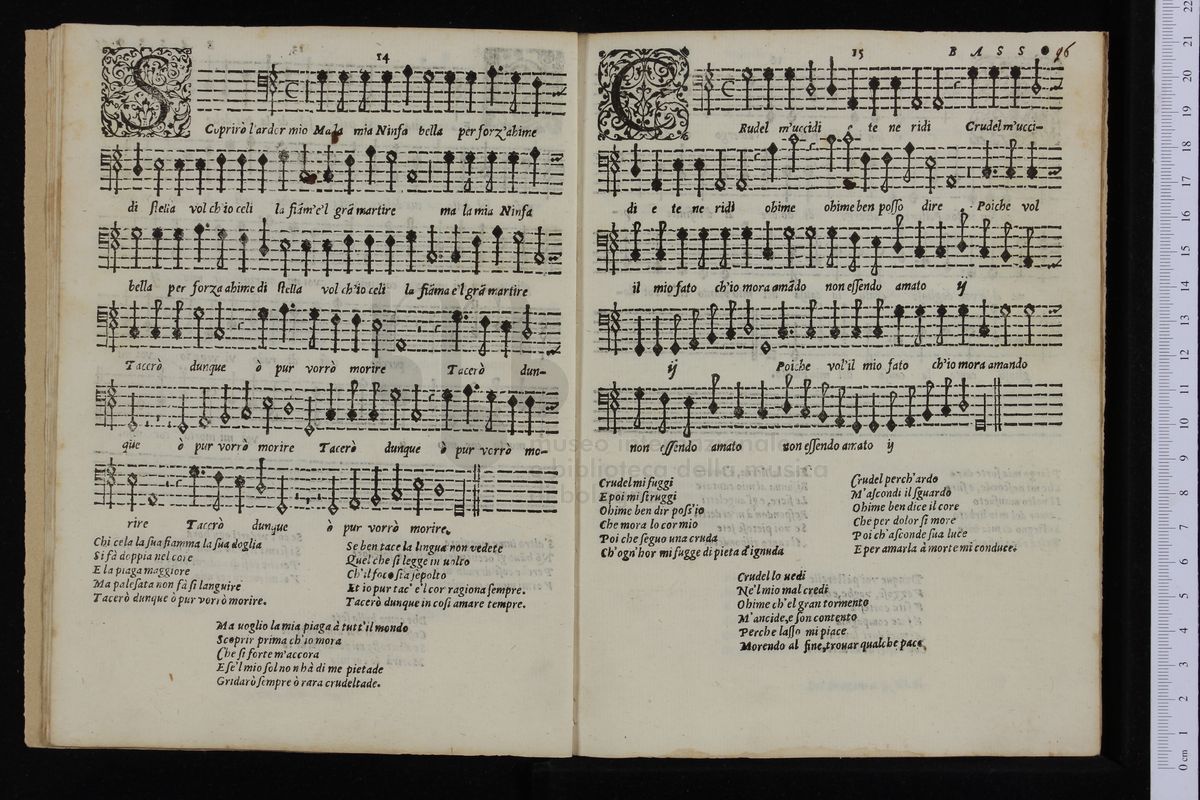 14
S
Coprirò l'ardor mio Ma la mia Ninfa bella per forz'ahime
di stella vol ch'io celi la fiãm'e'l grã martire ma la mia Ninfa
bella per forza ahime di stella vol ch'io celi la fiãma e'l grã martire
Tacerò dunque ò pur vorrò morire Tacerò dun-
que ò pur vorrò morire Tacerò dunque ò pur vorrò mo-
rire Tacerò dunque ò pur vorrò morire.
Chi cela la sua fiamma la sua doglia
Si fà doppia nel core
E la piaga maggiore
Ma palesata non fà si languire
Tacerò dunque ò pur vorrò morire.
Se ben tace la lingua non vedete
Quel che si legge in volto
Ch'il foco sta sepolto
Et io pur tac' e'l cor ragiona sempre.
Tacerò dunque in cosi amare tempre.
Ma voglio la mia piaga à tutt'il mondo
Scoprir prima ch'io mora
Che si forte m'accora
E se'l mio sol no n hà di me pietade
Gridarò sempre ò rara crudeltade.
15 BASSO 96
C
Rudel m'uccidi e te ne ridi Crudel m'ucci-
di e te ne ridi ohime ohime ben posso dire Poiche vol
il mio fato ch'io mora amãdo non essendo amato ij
ij Poiche vol'il mio fato ch'io mora amando
non essendo amato non essendo amato ij
Crudel mi fuggi
E poi mi struggi
Ohime ben dir poss'io
Che mora lo cor mio
Poi che seguo una cruda
Ch'ogn'hor mi fugge di pieta d'ignuda
Crudel perch'ardo
M'ascondi il sguardo
Ohime ben dice il core
Che per dolor si more
Poi ch'asconde sua luce
E per amarla à morte mi conduce.
Crudel lo vedi
Ne'l mio mal credi
Ohime ch'el gran tormento
M'ancide, e son contento
Perche lasso mi piace
Morendo al fine, trovar qualche pace.
museo internazionale
e biblioteca della musica
di bologna
0 cm 1 2 3 4 5 6 7 8 9 10 11 12 13 14 15 16 17 18 19 20 21 22